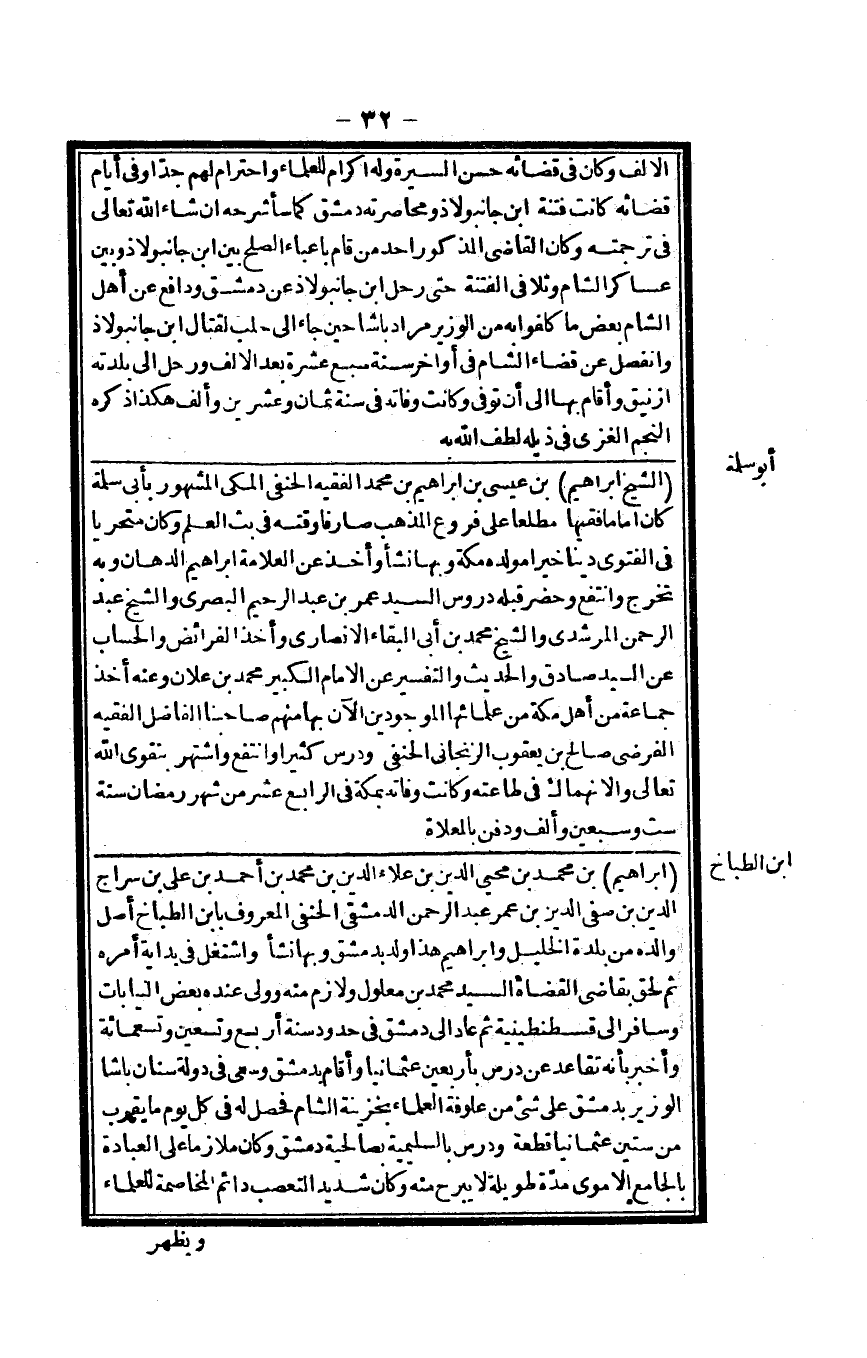 - ٣٢ -
الالف وكان فى قضائه حسن السيرة وله اكرام للعلماء واحترام لهم جدّا وفى أيام
قضائه كانت فتنة ابن جانبولاذ ومحاصرته دمشق كماسأشرحه ان شاء الله تعالى
فى ترجمته وكان القاضى المذكور احد من قام باعباء الصلح بين ابن جانبولاذ وبين
عساكر الشام وتلافى الفتنة حتى رحل ابن جانبولاذ عن دمشق ودافع عن أهل
الشام بعض ما كلفوابه من الوزير مراد باشا حين جاء الى حلب لقتال ابن جانبولاذ
وانفصل عن قضاء الشام فى أواخر سنة سبع عشرة بعد الالف ورحل الى بلدته
ازنيق وأقام بها الى أن توفى وكانت وفاته فى سنة ثمان وعشرين وألف هكذا ذكره
النجم الغزى فى ذيله لطف الله به
أبوسلمة
(الشيخ ابراهيم) بن عيسى بن ابراهيم بن محمد الفقيه الحنفى المكى المشهور بأبى سلمة
كان اماما فقيها مطلعا على فروع المذهب صارفا وقته فى بث العلم وكان متحريا
فى الفتوى دينا خيرا مولده مكة وبها نشأ وأخذ عن العلامة ابراهيم الدهان وبه
تخرج وانتفع وحضر قبله دروس السيد عمر بن عبد الرحيم البصرى والشيخ عبد
الرحمن المرشدى والشيخ محمد بن أبى البقاء الانصارى وأخذ الفرائض والحساب
عن السيد صادق والحديث والتفسير عن الامام الكبير محمد بن علان وعنه أخذ
جماعة من أهل مكة من علمائها الموجودين الآن بها منهم صاحبنا الفاضل الفقيه
الفرضى صالح بن يعقوب الزنجانى الحنفى ودرس كثيرا وانتفع واشتهر بتقوى الله
تعالى والانهماك فى طاعته وكانت وفاته بمكة فى الرابع عشر من شهر رمضان سنة
ست وسبعين وألف ودفن بالمعلاة
ابن الطباخ
(ابراهيم) بن محمد بن محيى الدين بن علاء الدين بن محمد بن أحمد بن على بن سراج
الدين بن صفى الدين بن عمر عبد الرحمن الدمشقى الحنفى المعروف بابن الطباخ أصل
والده من بلدة الخليل وابراهيم هذا ولد بدمشق وبها نشأ واشتغل فى بداية أمره
ثم لحق بقاضى القضاة السيد محمد بن معلول ولازم منه وولى عنده بعض النيابات
وسافر الى قسطنطينية ثم عاد الى دمشق فى حدود سنة أربع وتسعين وتسعمائة
وأخبر بأنه تقاعد عن درس بأربعين عثمانيا وأقام بدمشق وسعى فى دولة سنان باشا
الوزير بدمشق على شئ من علوفة العلماء بخزينة الشام فحصل له فى كل يوم ما يقرب
من ستين عثمانيا قطعة ودرس بالسليمية بصالحية دمشق وكان ملازما على العبادة
بالجامع الاموى مدّة طويلة لا يبرح منه وكان شديد التعصب دائم المخاصمة للعلماء
ويظهر